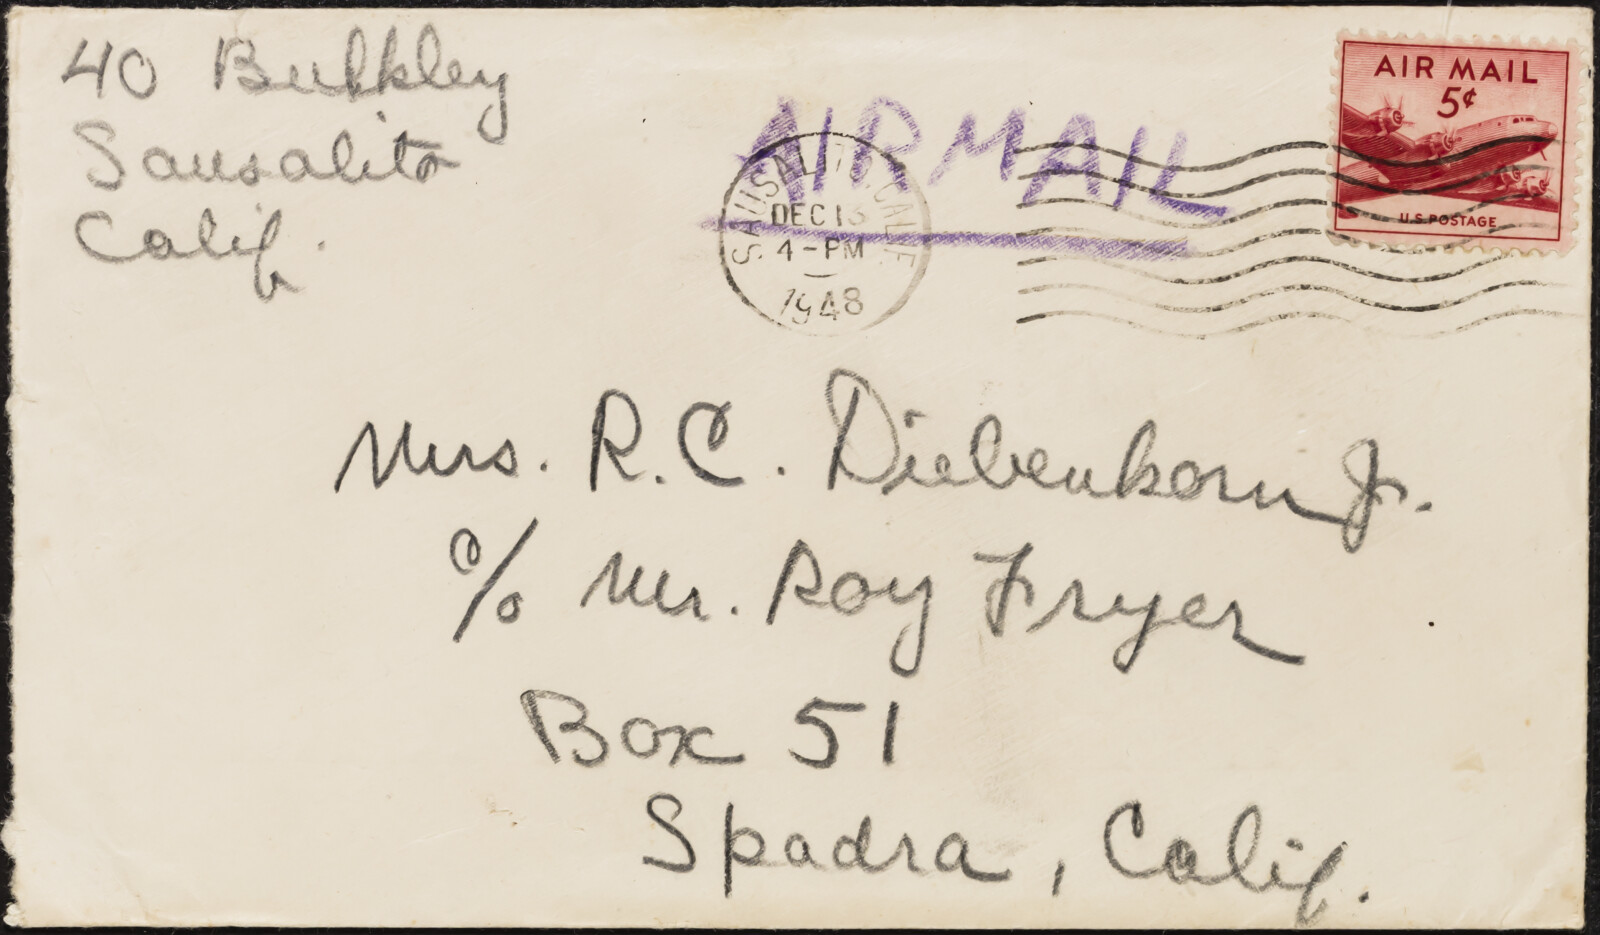 40 Bulkley
Sausalito
Calif.
AIRMAIL
SAUSALITO, CALIF.
DEC 13
4-PM
1948
AIR MAIL
5¢
U.S. POSTAGE
Mrs. R. C. Diebenkorn Jr.
c/o Mr. Roy Fryer
Box 51
Spadra, Calif.